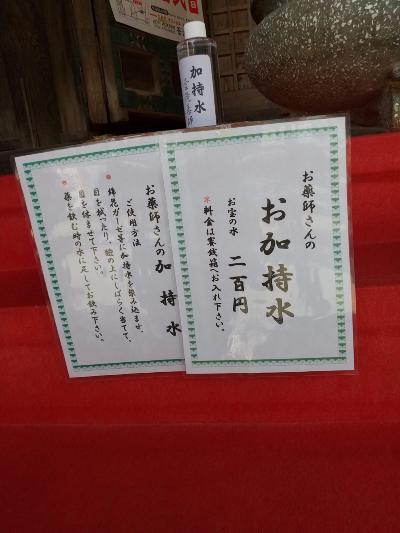 加持水
お薬師さんの
お加持水
お宝の水 二百円
※料金は賽銭箱へお入れ下さい。
お薬師さんの 加持水
ご使用方法
綿花ガーゼ等に加持水を染み込ませ、
目を拭ったり、瞼の上にしばらく当てて、
目を休ませて下さい。
薬を飲む時の水に足してお飲み下さい。